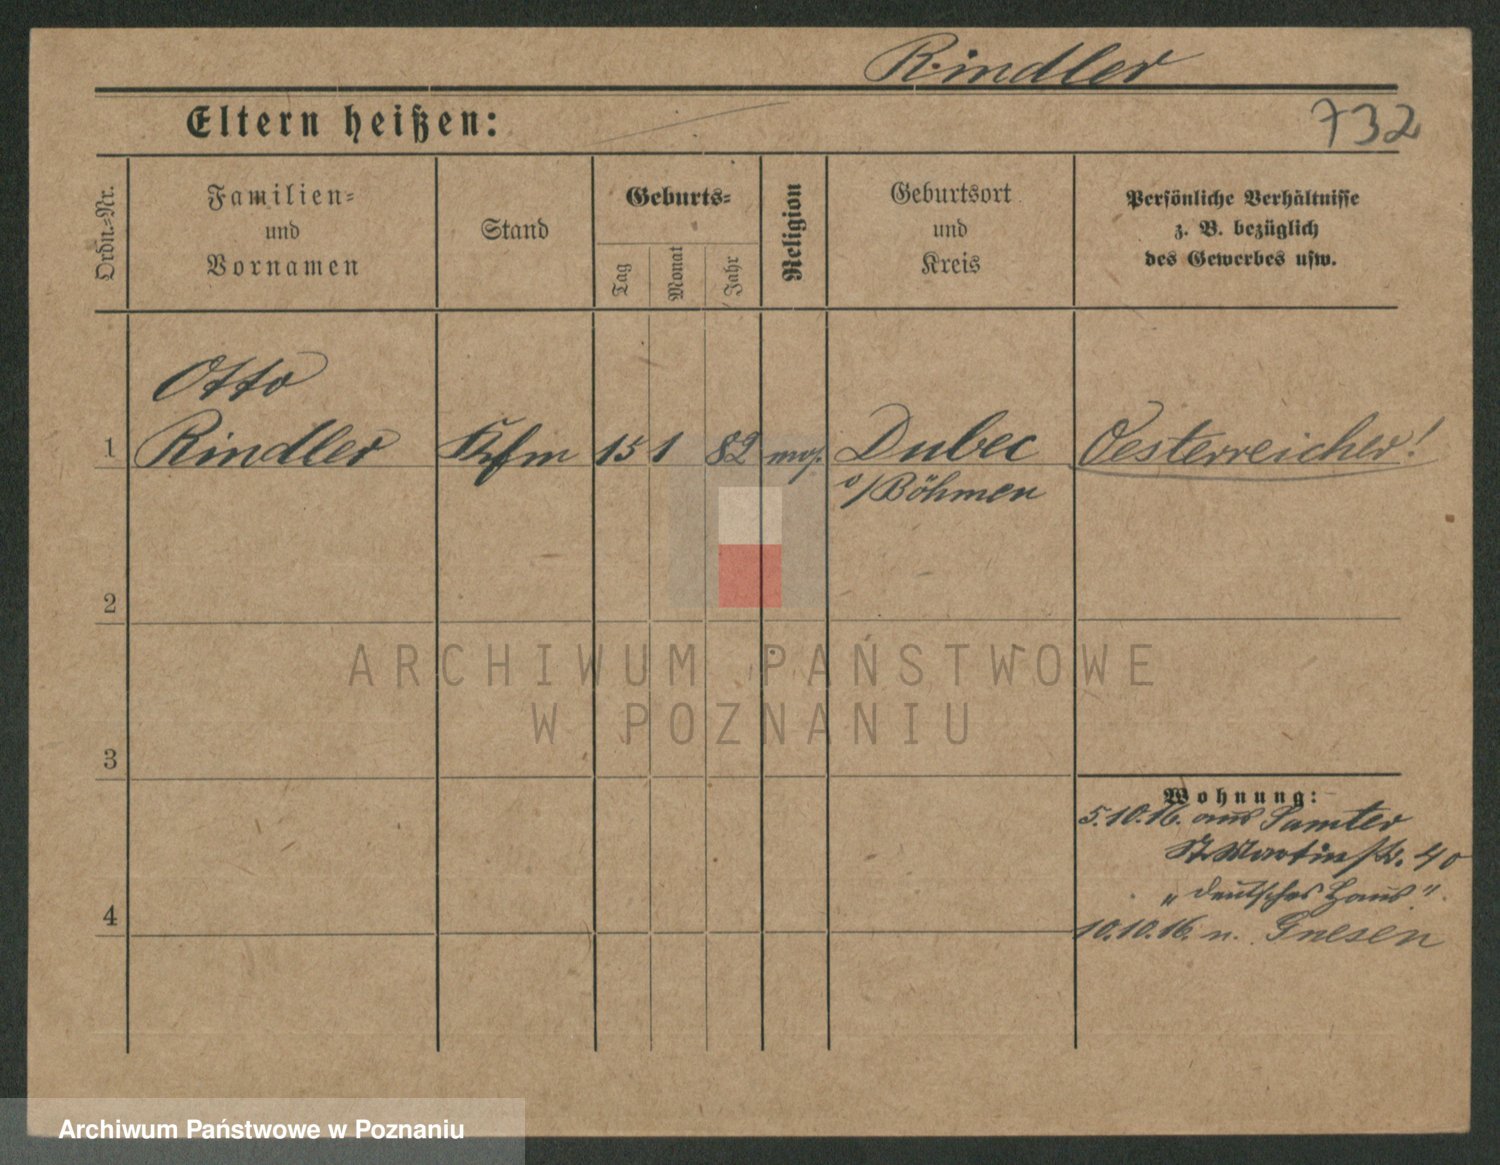 Rindler
Eltern heißen:
732
Ordn.=Nr.
Familien=
und
Vornamen
Stand
Geburts=
Tag
Monat
Jahr
Religion
Geburtsort
und
Kreis
Persönliche Verhältnisse
z. B. bezüglich
des Gewerbes usw.
Otto
1 Rindler Kfm 15 1 82 mos. Dubec Oesterreicher!
/Böhmen
2
3
Wohnung:
5.10.16. aus Samter
St Martinstr. 40
"deutsches Haus".
4
10.10.16. n. Gnesen
ARCHIWUM PAŃSTWOWE
W POZNANIU
Archiwum Państwowe w Poznaniu